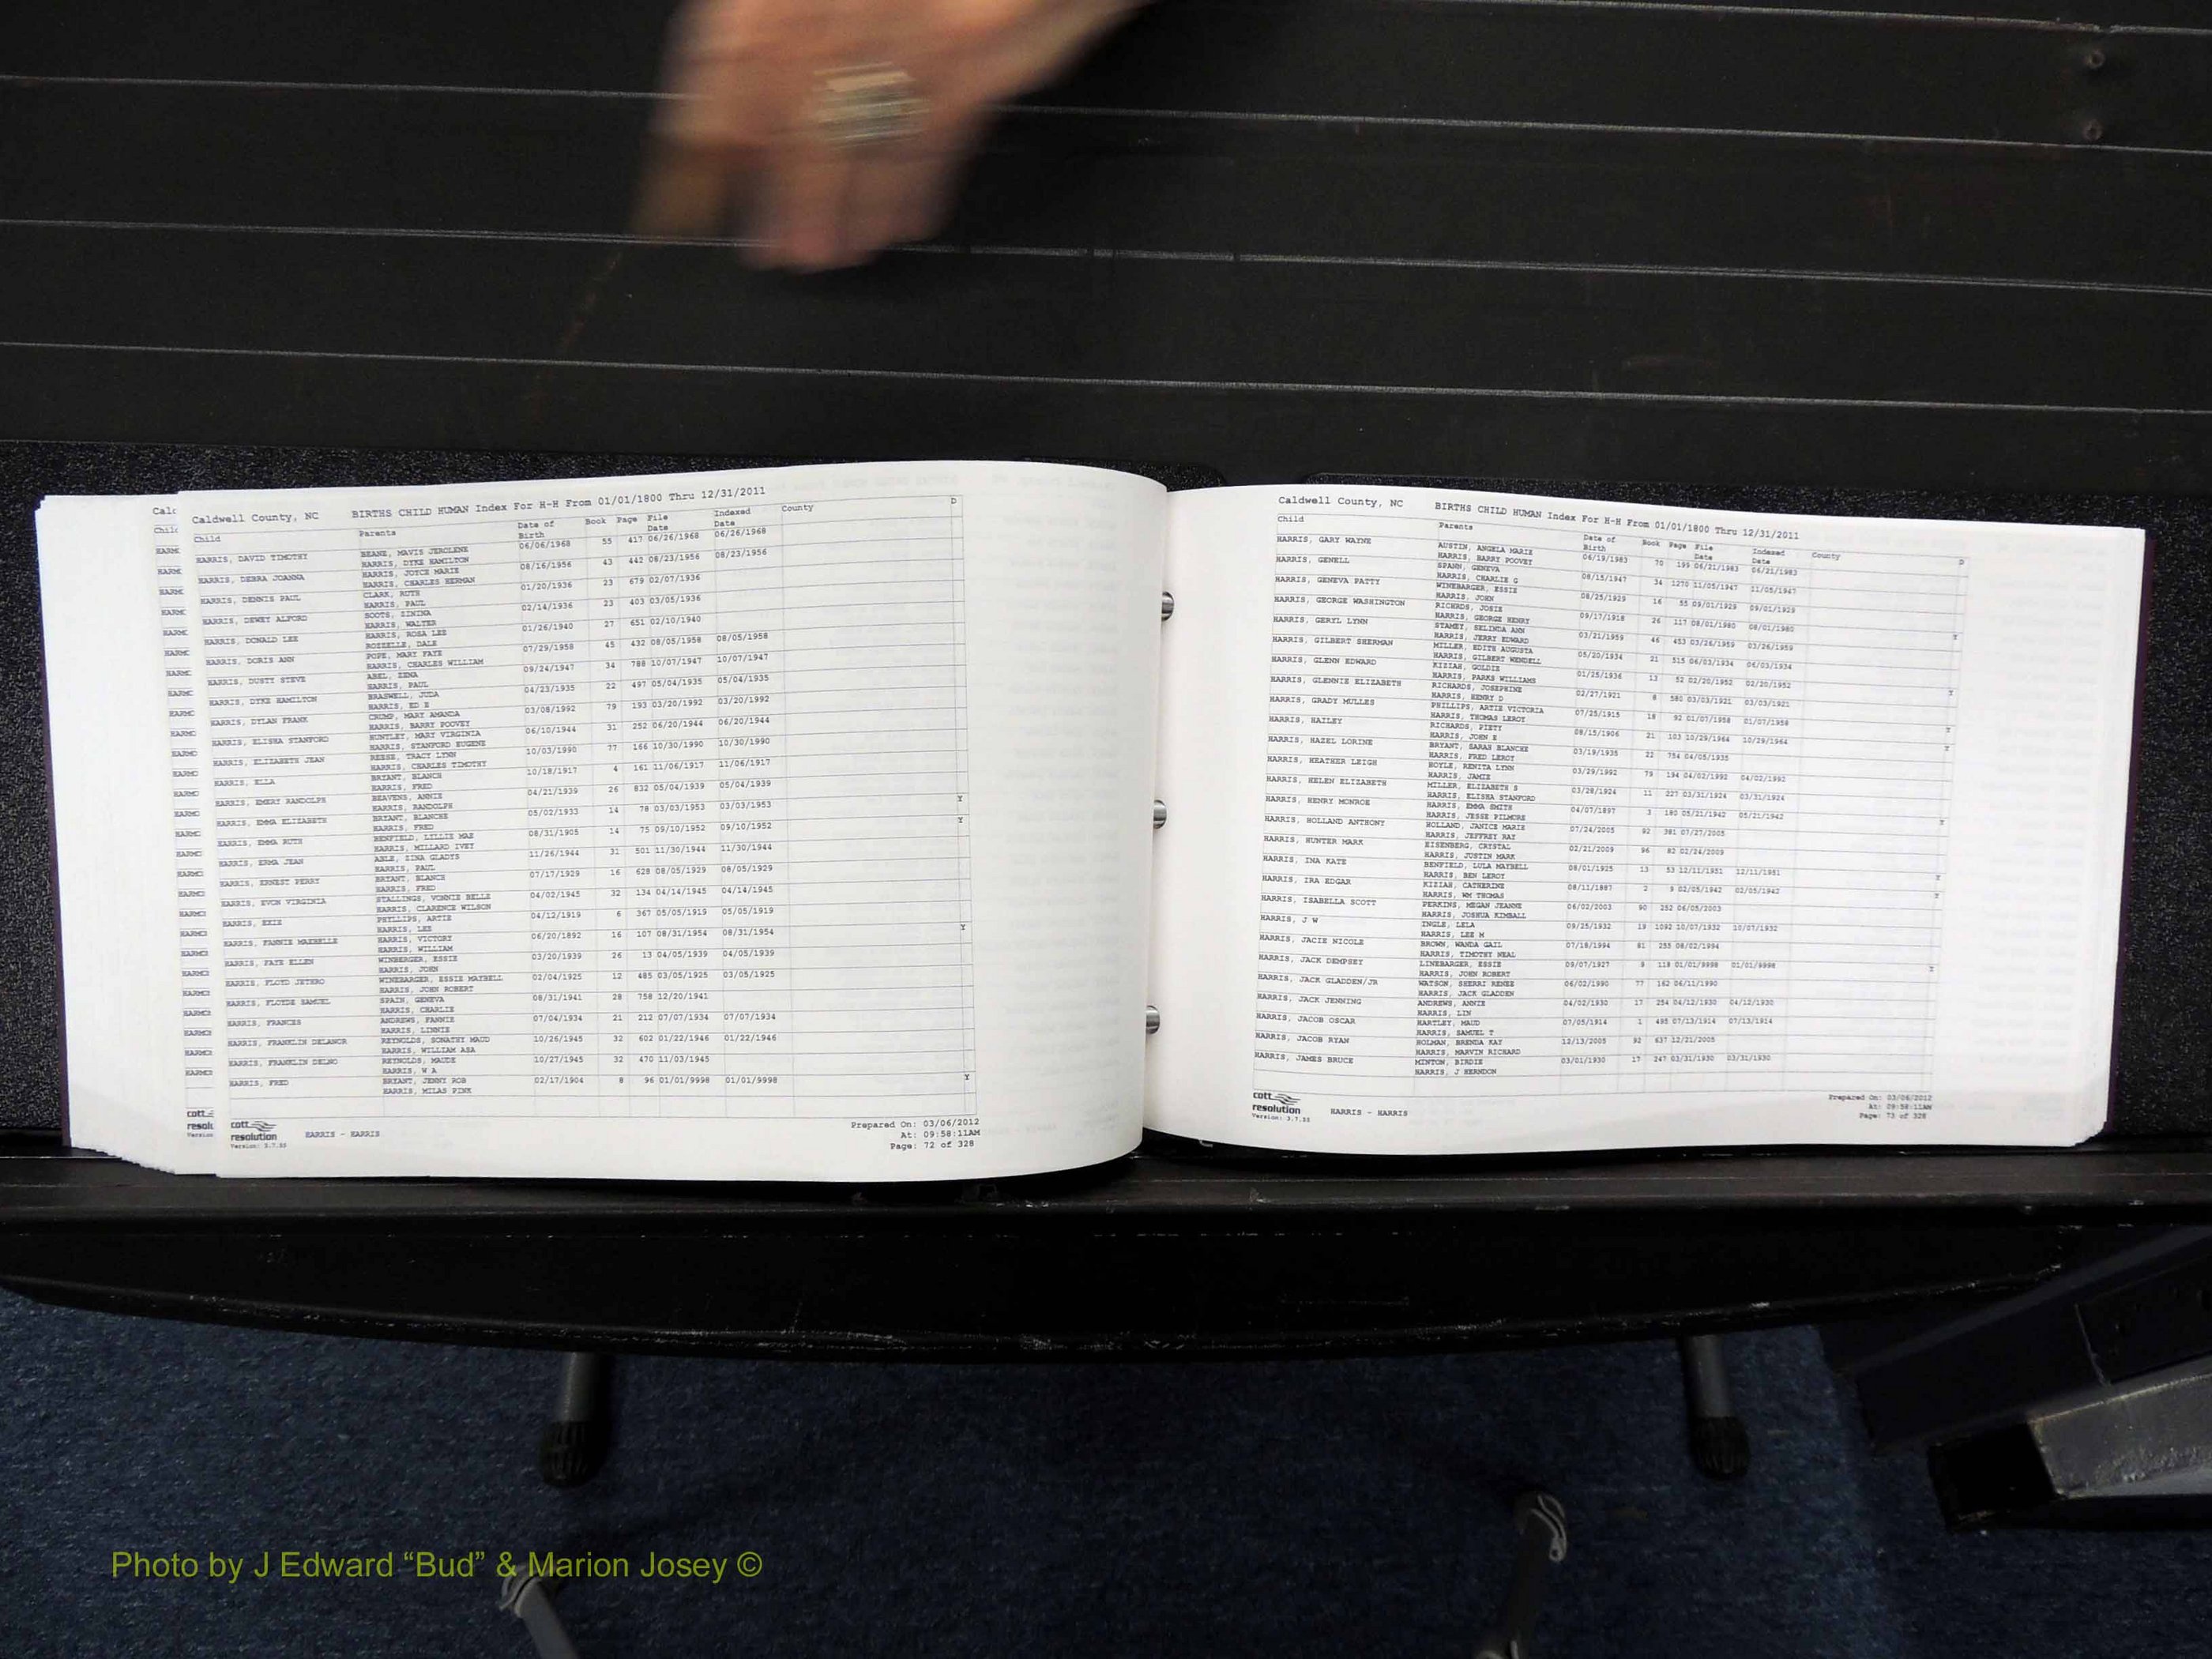 Caldwell County, NC BIRTHS CHILD HUMAN Index For H-H From 01/01/1800 Thru 12/31/2011
Child Parents Date of Birth Book Page File Date Indexed Date County D
HARRIS, DAVID TIMOTHY BEANE, MAVIS JEROLENE 06/06/1968 55 417 06/26/1968 06/26/1968
HARRIS, DYKE HAMILTON
HARRIS, DEBRA JOANNA HARRIS, JOYCE MARIE 08/16/1956 43 442 08/23/1956 08/23/1956
HARRIS, CHARLES HERMAN
HARRIS, DENNIS PAUL CLARK, RUTH 01/20/1936 23 679 02/07/1936
HARRIS, PAUL
HARRIS, DEWEY ALFORD BOOTS, ZINIHA 02/14/1936 23 403 03/05/1936
HARRIS, WALTER
HARRIS, DONALD LEE HARRIS, ROSA LEE 01/26/1940 27 651 02/10/1940
ROSZELLE, DALE
HARRIS, DORIS ANN POPE, MARY FAYE 07/29/1958 45 432 08/05/1958 08/05/1958
HARRIS, CHARLES WILLIAM
HARRIS, DUSTY STEVE ABEL, ZENA 09/24/1947 34 788 10/07/1947 10/07/1947
HARRIS, PAUL
HARRIS, DYKE HAMILTON BRASWELL, JUDA 04/23/1935 22 497 05/04/1935 05/04/1935
HARRIS, ED E
HARRIS, DYLAN FRANK CRUMP, MARY AMANDA 03/08/1992 79 193 03/20/1992 03/20/1992
HARRIS, BARRY POOVEY
HARRIS, ELISHA STANFORD HUNTLEY, MARY VIRGINIA 06/10/1944 31 252 06/20/1944 06/20/1944
HARRIS, STANFORD EUGENE
HARRIS, ELIZABETH JEAN REESE, TRACY LYNN 10/03/1990 77 166 10/30/1990 10/30/1990
HARRIS, CHARLES TIMOTHY
HARRIS, ELLA BRYANT, BLANCH 10/18/1917 4 161 11/06/1917 11/06/1917
HARRIS, FRED
HARRIS, EMERY RANDOLPH BEAVENS, ANNIE 04/21/1939 26 832 05/04/1939 05/04/1939
HARRIS, RANDOLPH
HARRIS, EMMA ELIZABETH BRYANT, BLANCHE 05/02/1933 14 78 03/03/1953 03/03/1953 Y
HARRIS, FRED
HARRIS, EMMA RUTH BENFIELD, LILLIE MAE 08/31/1905 14 75 09/10/1952 09/10/1952 Y
HARRIS, MILLARD IVEY
HARRIS, ERMA JEAN ABLE, ZINA GLADYS 11/26/1944 31 501 11/30/1944 11/30/1944
HARRIS, PAUL
HARRIS, ERNEST PERRY BRYANT, BLANCH 07/17/1929 16 628 08/05/1929 08/05/1929
HARRIS, FRED
HARRIS, EVON VIRGINIA STALLINGS, VONNIE BELLE 04/02/1945 32 134 04/14/1945 04/14/1945
HARRIS, CLARENCE WILSON
HARRIS, EXIE PHYLLIPS, ARTIE 04/12/1919 6 367 05/05/1919 05/05/1919
HARRIS, LEE
HARRIS, FANNIE MAEBELLE HARRIS, VICTORY 06/20/1892 16 107 08/31/1954 08/31/1954 Y
HARRIS, WILLIAM
HARRIS, FAYE ELLEN WINBERGER, ESSIE 03/20/1939 26 13 04/05/1939 04/05/1939
HARRIS, JOHN
HARRIS, FLOYD JETERO WINEBARGER, ESSIE MAYBELL 02/04/1925 12 485 03/05/1925 03/05/1925
HARRIS, JOHN ROBERT
HARRIS, FLOYDE SAMUEL SPAIN, GENEVA 08/31/1941 28 758 12/20/1941
HARRIS, CHARLIE
HARRIS, FRANCES ANDREWS, FANNIE 07/04/1934 21 212 07/07/1934 07/07/1934
HARRIS, LINNIE
HARRIS, FRANKLIN DELANOR REYNOLDS, SONATHY MAUD 10/26/1945 32 602 01/22/1946 01/22/1946
HARRIS, WILLIAM ASA
HARRIS, FRANKLIN DELNO REYNOLDS, MAUDE 10/27/1945 32 470 11/03/1945
HARRIS, W A
HARRIS, FRED BRYANT, JENNY ROB 02/17/1904 8 96 01/01/9998 01/01/9998 Y
HARRIS, MILAS PINK
cott
resolution
Version: 3.7.33
HARRIS - HARRIS
Prepared On: 03/06/2012
At: 09:58:11AM
Page: 72 of 328
Caldwell County, NC BIRTHS CHILD HUMAN Index For H-H From 01/01/1800 Thru 12/31/2011
Child Parents Date of Birth Book Page File Date Indexed Date County D
HARRIS, GARY WAYNE AUSTIN, ANGELA MARIE 06/19/1983 70 199 06/21/1983 06/21/1983
HARRIS, BARRY POOVEY
HARRIS, GENELL SPANN, GENEVA 08/15/1947 34 1270 11/05/1947 11/05/1947
HARRIS, CHARLIE G
HARRIS, GENEVA PATTY WINEBARGER, ESSIE 08/25/1929 16 55 09/01/1929 09/01/1929
HARRIS, JOHN
HARRIS, GEORGE WASHINGTON RICHRDS, JOSIE 09/17/1918 26 117 08/01/1980 08/01/1980 Y
HARRIS, GEORGE HENRY
HARRIS, GERYL LYNN STAMEY, SELINDA ANN 03/21/1959 46 453 03/26/1959 03/26/1959
HARRIS, JERRY EDWARD
HARRIS, GILBERT SHERMAN MILLER, EDITH AUGUSTA 05/20/1934 21 515 06/03/1934 06/03/1934
HARRIS, GILBERT WENDELL
HARRIS, GLENN EDWARD KIZIAH, GOLDIE 01/25/1936 13 52 02/20/1952 02/20/1952 Y
HARRIS, PARKS WILLIAMS
HARRIS, GLENNIE ELIZABETH RICHARDS, JOSEPHINE 02/27/1921 8 580 03/03/1921 03/03/1921
HARRIS, HENRY D
HARRIS, GRADY MULLES PHILLIPS, ARTIE VICTORIA 07/25/1915 18 92 01/07/1958 01/07/1958 Y
HARRIS, THOMAS LEROY
HARRIS, HAILEY RICHARDS, PIETY 08/15/1906 21 103 10/29/1964 10/29/1964 Y
HARRIS, JOHN E
HARRIS, HAZEL LORINE BRYANT, SARAH BLANCHE 03/19/1935 22 754 04/05/1935
HARRIS, FRED LEROY
HARRIS, HEATHER LEIGH HOYLE, RENITA LYNN 03/29/1992 79 194 04/02/1992 04/02/1992
HARRIS, JAMIE
HARRIS, HELEN ELIZABETH MILLER, ELIZABETH S 03/28/1924 11 227 03/31/1924 03/31/1924
HARRIS, ELISHA STANFORD
HARRIS, HENRY MONROE HARRIS, EMMA SMITH 04/07/1897 3 180 05/21/1942 05/21/1942 Y
HARRIS, JESSE PILMORE
HARRIS, HOLLAND ANTHONY HOLLAND, JANICE MARIE 07/24/2005 92 381 07/27/2005
HARRIS, JEFFREY RAY
HARRIS, HUNTER MARK EISENBERG, CRYSTAL 02/21/2009 96 82 02/24/2009
HARRIS, JUSTIN MARK
HARRIS, INA KATE BENFIELD, LULA MAYBELL 08/01/1925 13 53 12/11/1951 12/11/1951 Y
HARRIS, BEN LEROY
HARRIS, IRA EDGAR KIZIAH, CATHERINE 08/11/1887 2 9 02/05/1942 02/05/1942 Y
HARRIS, WM THOMAS
HARRIS, ISABELLA SCOTT PERKINS, MEGAN JEANNE 06/02/2003 90 252 06/05/2003
HARRIS, JOSHUA KIMBALL
HARRIS, J W INGLE, LELA 09/25/1932 19 1092 10/07/1932 10/07/1932
HARRIS, LEE M
HARRIS, JACIE NICOLE BROWN, WANDA GAIL 07/18/1994 81 255 08/02/1994
HARRIS, TIMOTHY NEAL
HARRIS, JACK DEMPSEY LINEBARGER, ESSIE 09/07/1927 9 118 01/01/9998 01/01/9998 Y
HARRIS, JOHN ROBERT
HARRIS, JACK GLADDEN/JR WATSON, SHERRI RENEE 06/02/1990 77 162 06/11/1990
HARRIS, JACK GLADDEN
HARRIS, JACK JENNING ANDREWS, ANNIE 04/02/1930 17 254 04/12/1930 04/12/1930
HARRIS, LIN
HARRIS, JACOB OSCAR HARTLEY, MAUD 07/05/1914 1 495 07/13/1914 07/13/1914
HARRIS, SAMUEL T
HARRIS, JACOB RYAN HOLMAN, BRENDA KAY 12/13/2005 92 637 12/21/2005
HARRIS, MARVIN RICHARD
HARRIS, JAMES BRUCE MINTON, BIRDIE 03/01/1930 17 247 03/31/1930 03/31/1930
HARRIS, J HERNDON
cott
resolution
Version: 3.7.33
HARRIS - HARRIS
Prepared On: 03/06/2012
At: 09:58:11AM
Page: 73 of 328
Photo by J Edward “Bud” & Marion Josey ©